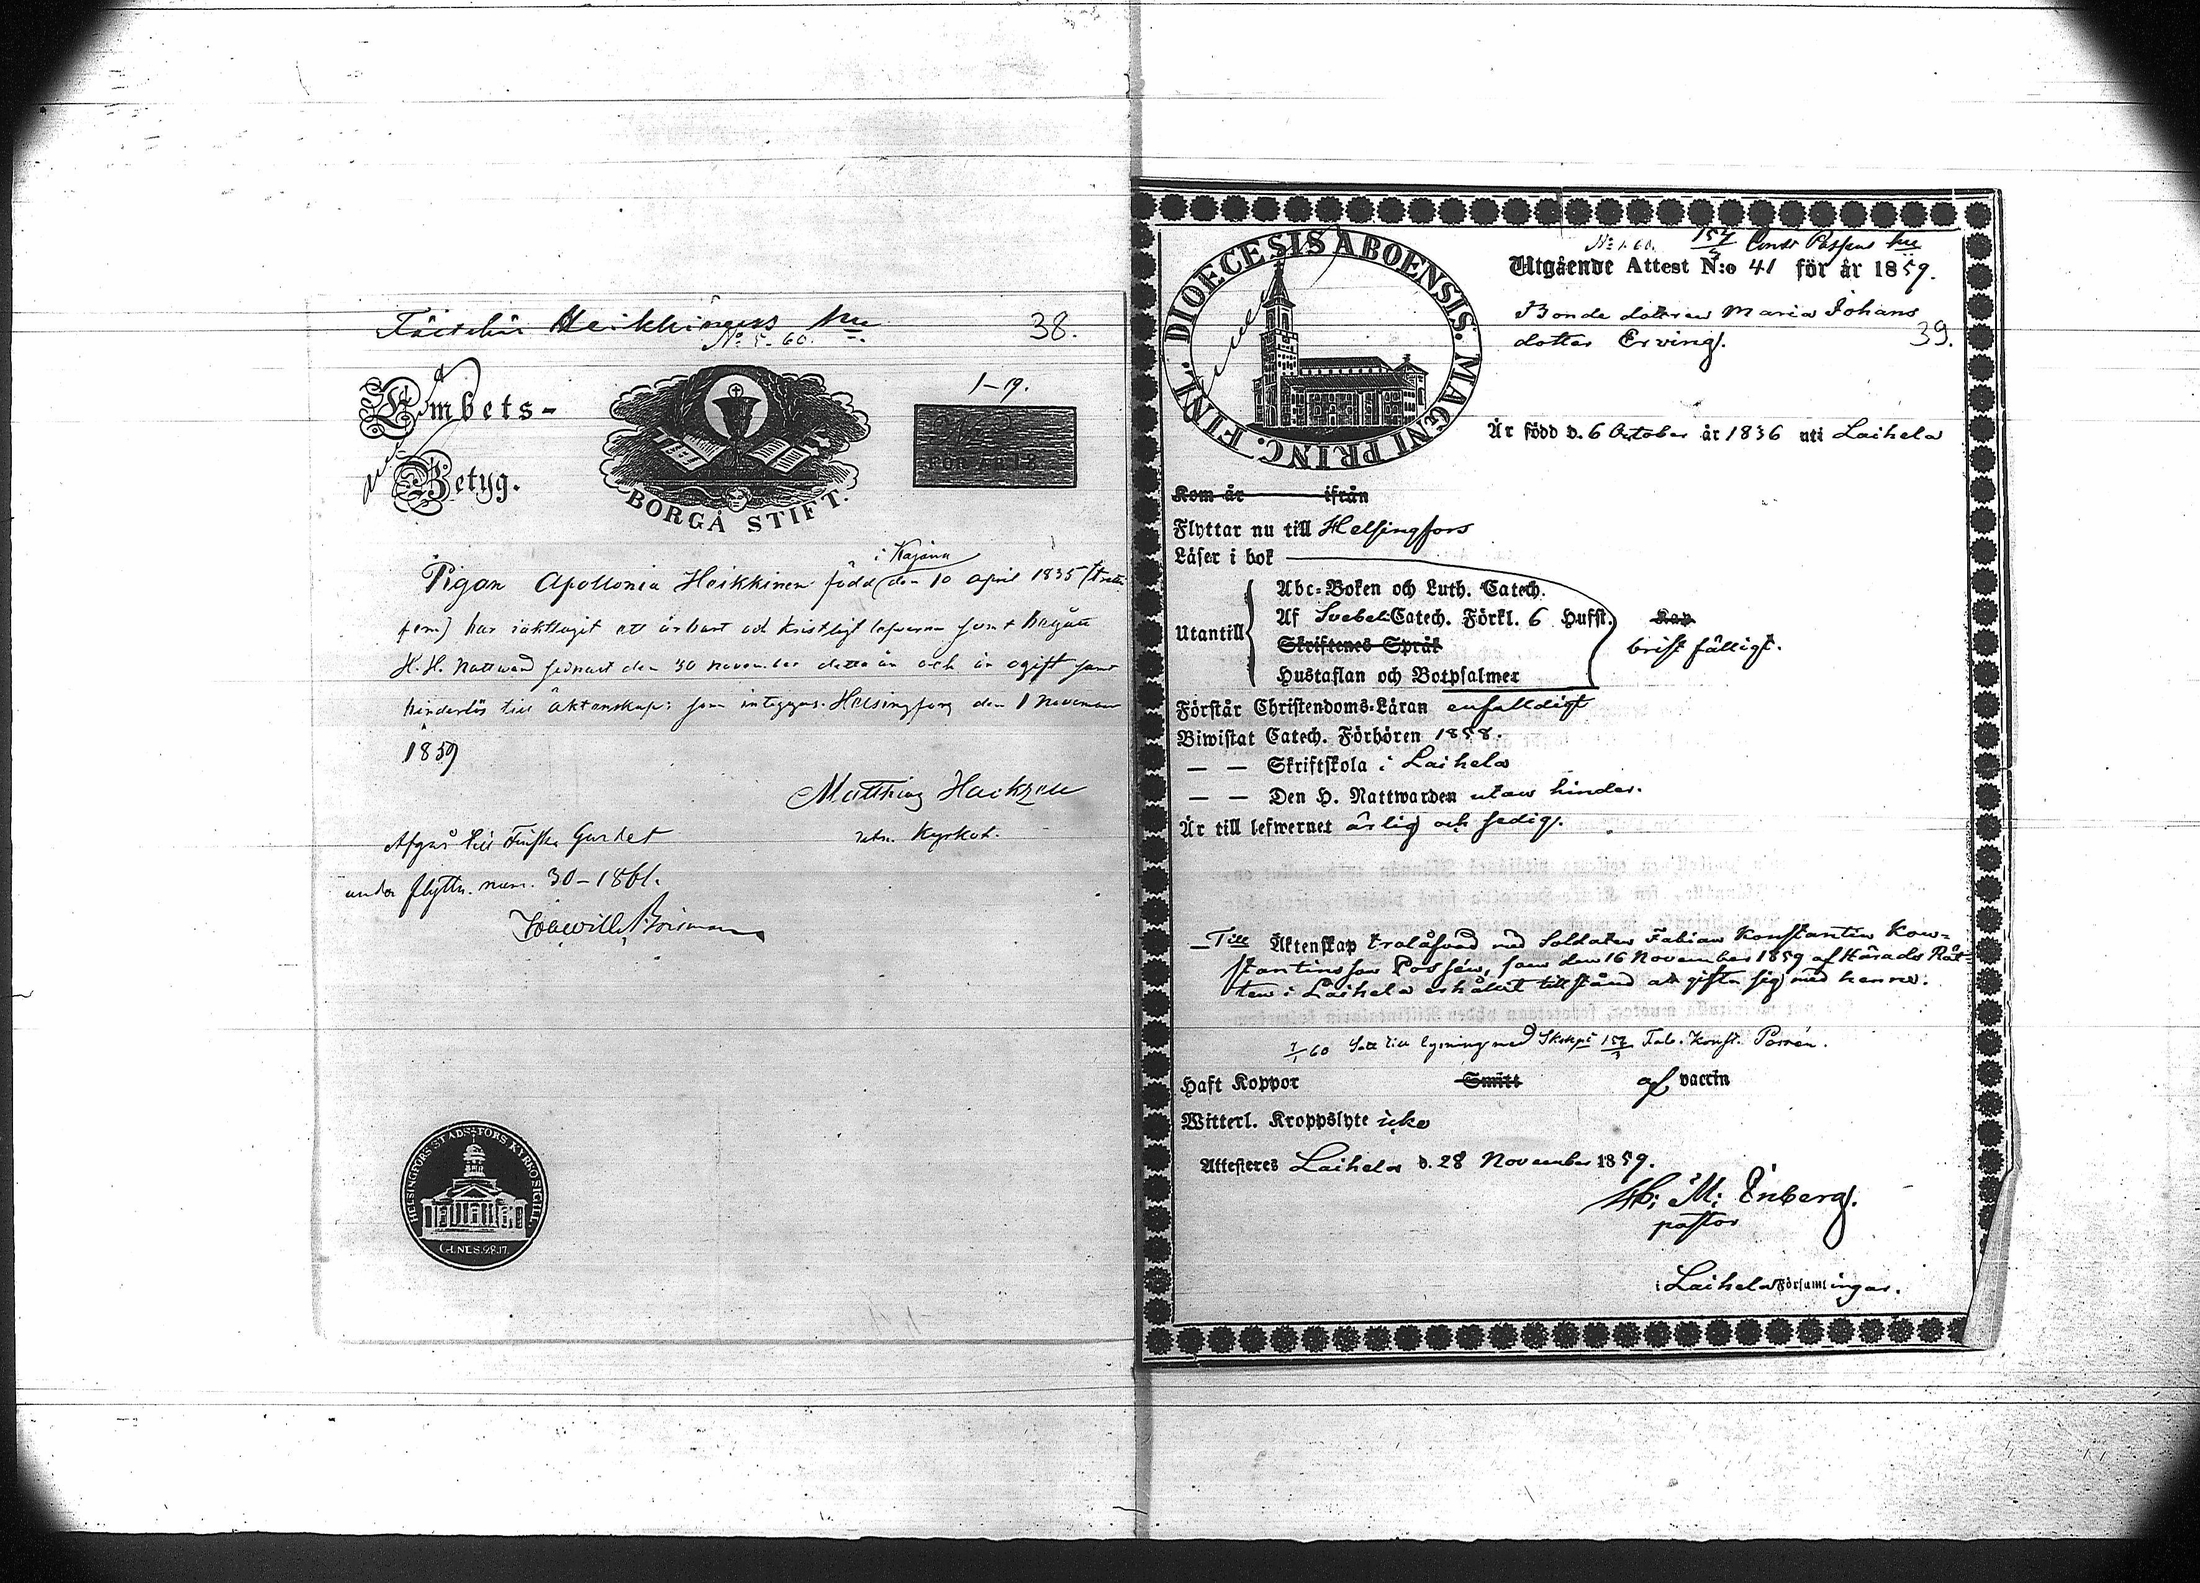 Heikkinens hu
No 5. 60.
38.
Embets-
Betyg.
1-19.
FÖR ÅR 18
BORGÅ STIFT.
i Kajana
Pigan Apollonia Heikkinen född den 10 april 1835 (tretti
fem) har iakttagit ett ärbart och kristligt lefwerne samt begått
H. H. Nattward senast den 30 november detta år och är ogift samt
hinderlös till äktenskap; som intygas. Helsingfors den 1 November
1859
Matthias Hackzell
Kyrkoh.
Afgår till Finska Gardet
under flyttn. num. 30-1861.
HELSINGFORS STADS-FÖRS. KYRKO SIGILL.
GENES. 28.17.
No 1. 60. 157/3 Const Possens hu
Utgående Attest N:o 41 för år 1859.
Bonde dottren Maria Johans
dotter Erving.
39.
DIOECESIS ABOENSIS. MAGNI PRINC. FINL.
Är född d. 6 October år 1836 uti Laihela
Kom år ifrån
Flyttar nu till Helsingfors
Läser i bok
Utantill
Abc-Boken och Luth. Catech.
Af Svebel. Catech. Förkl. 6 Hufst.
Skriftenes Språk
Hustaflan och Botpsalmer
Kap
brist fälligt.
Förstår Christendoms-Läran enfaldigt
Biwistat Catech. Förhören 1858.
— — Skriftskola i Laihela
— — Den H. Nattwarden utan hinder.
Är till lefwernet ärlig och sedig.
Till Äktenskap trolofvad med Soldaten Fabian Konstantin Kon-
stantinsson Possén, som den 16 November 1859 af Härads Rät-
ten i Laihela erhållit tillstånd att gifta sig med henne.
1/1 60 Satt till lysning med Skrkpt 157/3 Fab. Konst. Possén.
Haft Koppor Smitt af vaccin
Witterl. Kroppslyte icke
Attesteres Laihela d. 28 November 1859.
M: Enberg.
pastor
i Laihela Församlingar.